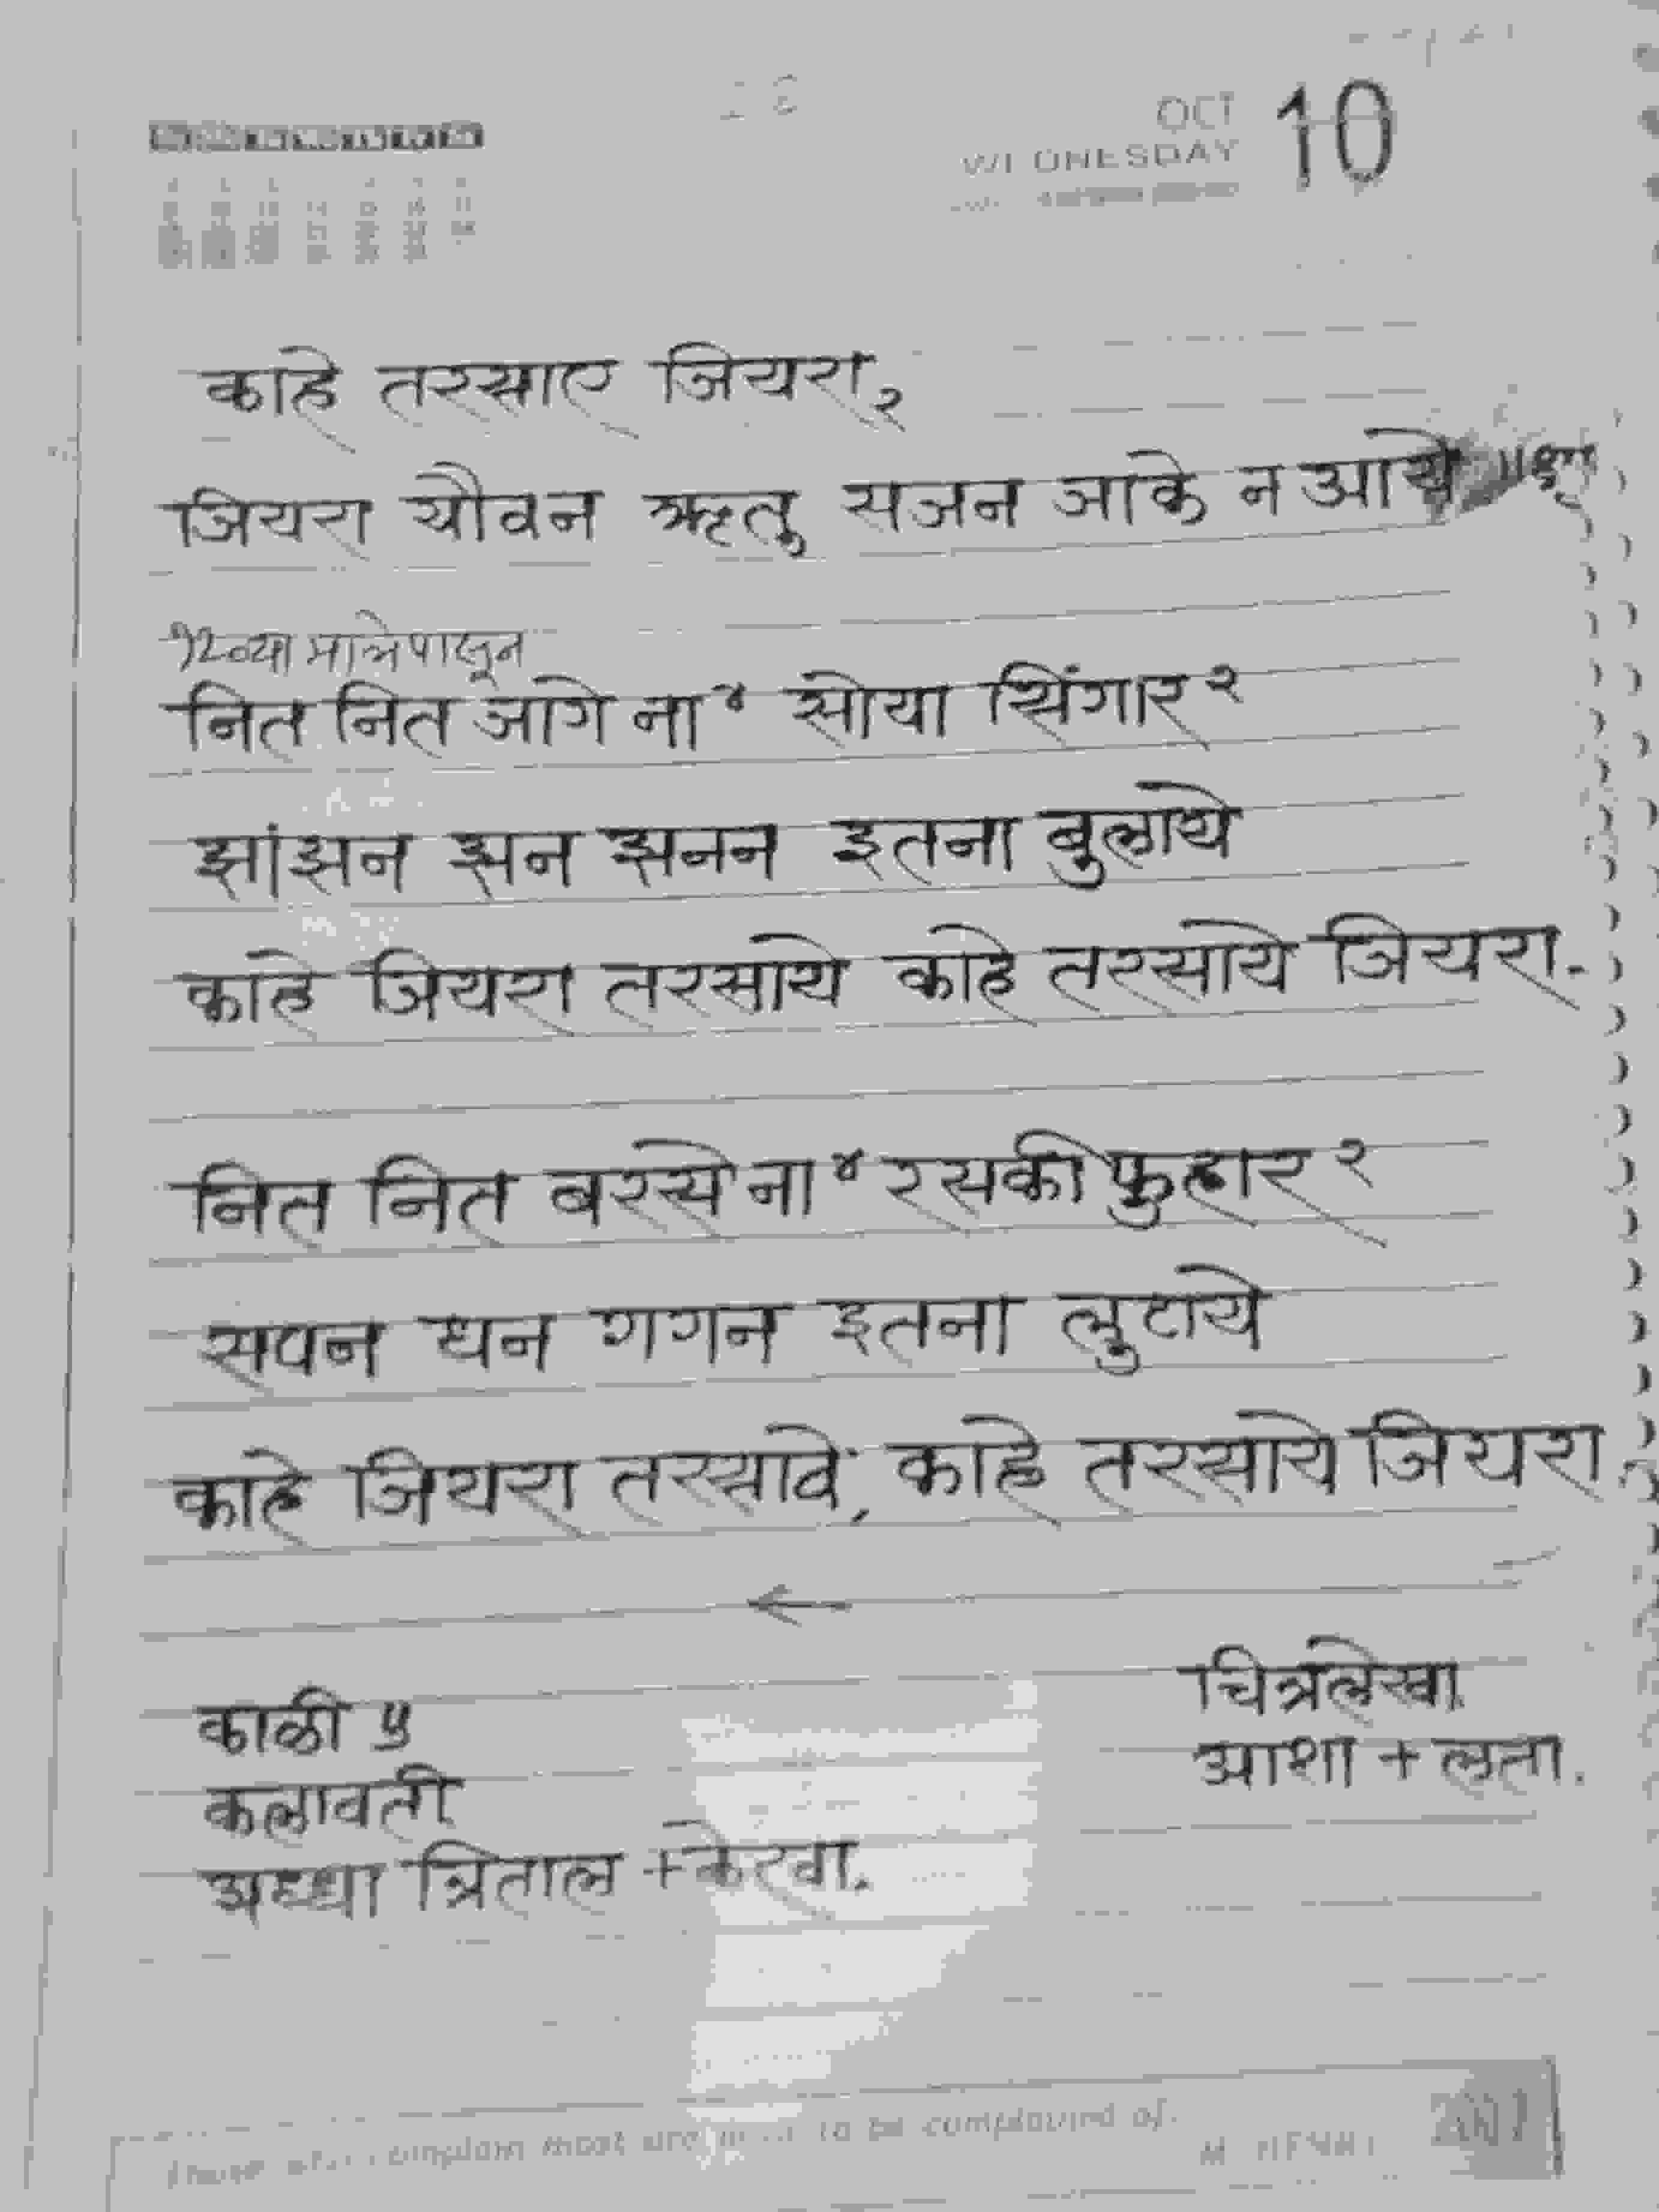 OCT 10
WEDNESDAY
काहे तरसाए जियरा २
जियरा यौवन ऋतु सजन जाके न आये ॥धृ॥
१२व्या मात्रेपासून
नित नित जागे ना ४ सोया सिंगार २
झांझन झन झनन इतना बुलाये
काहे जियरा तरसाये काहे तरसाये जियरा.
नित नित बरसे ना ४ रसकी फुहार २
सपन धन गगन इतना लुटाये
काहे जियरा तरसावे, काहे तरसाये जियरा.
←
चित्रलेखा
काळी ५
आशा + लता.
कलावती
अध्धा त्रिताल + केरवा.
complain most are to be complained of.
M. HENRY